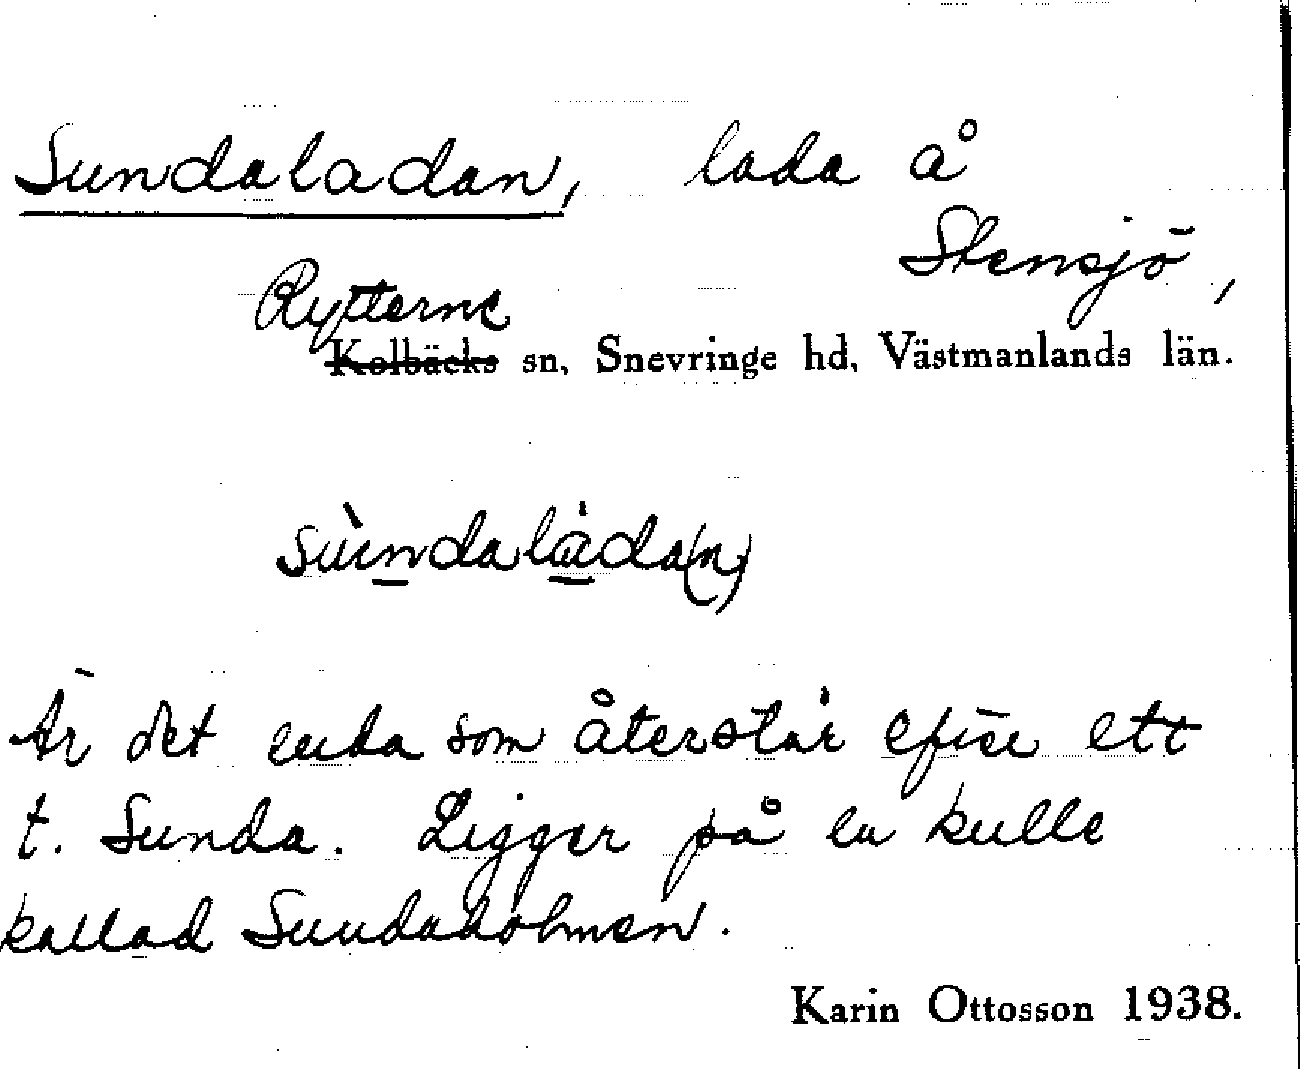 Sundaladan, lada å
Stensjö,
Rytterne
Kolbäcks sn, Snevringe hd, Västmanlands län.
sùndaláda(n)
Är det enda som återstår efter ett
t. Sunda. Ligger på en kulle
kallad Sundaholmen.
Karin Ottosson 1938.